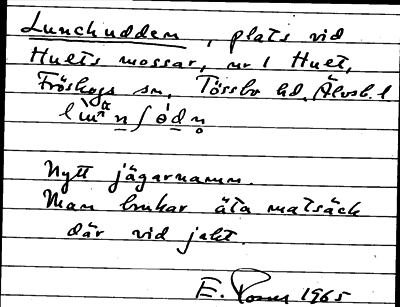 Lunchudden, plats vid
Huets mossar, nr 1 Huet,
Fröskogs sn, Tössbo hd, Älvsb. l.
Nytt jägarnamn.
Man brukar äta matsäck
där vid jakt.
E. 1965